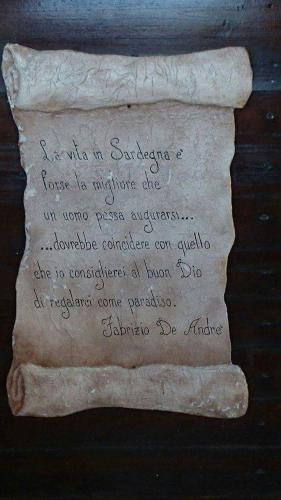 La vita in Sardegna è
forse la migliore che
un uomo possa augurarsi...
...dovrebbe coincidere con quello
che io consiglierei al buon Dio
di regalarci come paradiso.
Fabrizio De Andrè